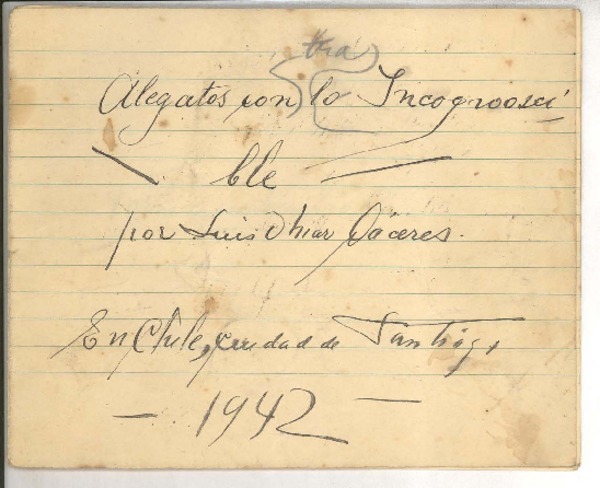 tra
Alegatos con lo Incognosci
ble
por Luis Omar Cáceres.
En Chile, ciudad de Santiago
- 1942 -